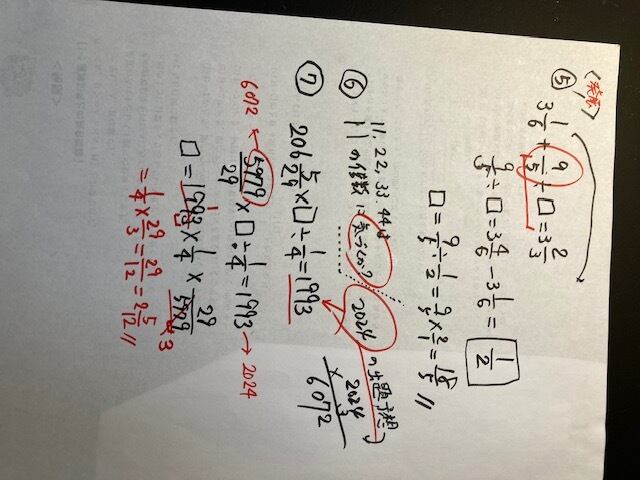 ⑤
3 1/6 + 9/5 ÷ □ = 3 2/3
9/5 ÷ □ = 3 4/6 - 3 1/6 = 1/2
□ = 9/5 ÷ 1/2 = 9/5 × 2/1 = 18/5 //
⑥
11, 22, 33, 44は
11の倍数に気づくか?
2024の出題予想
2024
× 3
6072
⑦
206 5/29 × □ ÷ 1/4 = 1993
6072 ← 5979/29 × □ ÷ 1/4 = 1993 → 2024
□ = 1993 × 1/4 × 29/5979
3
= 1/4 × 29/3 = 29/12 = 2 5/12 //